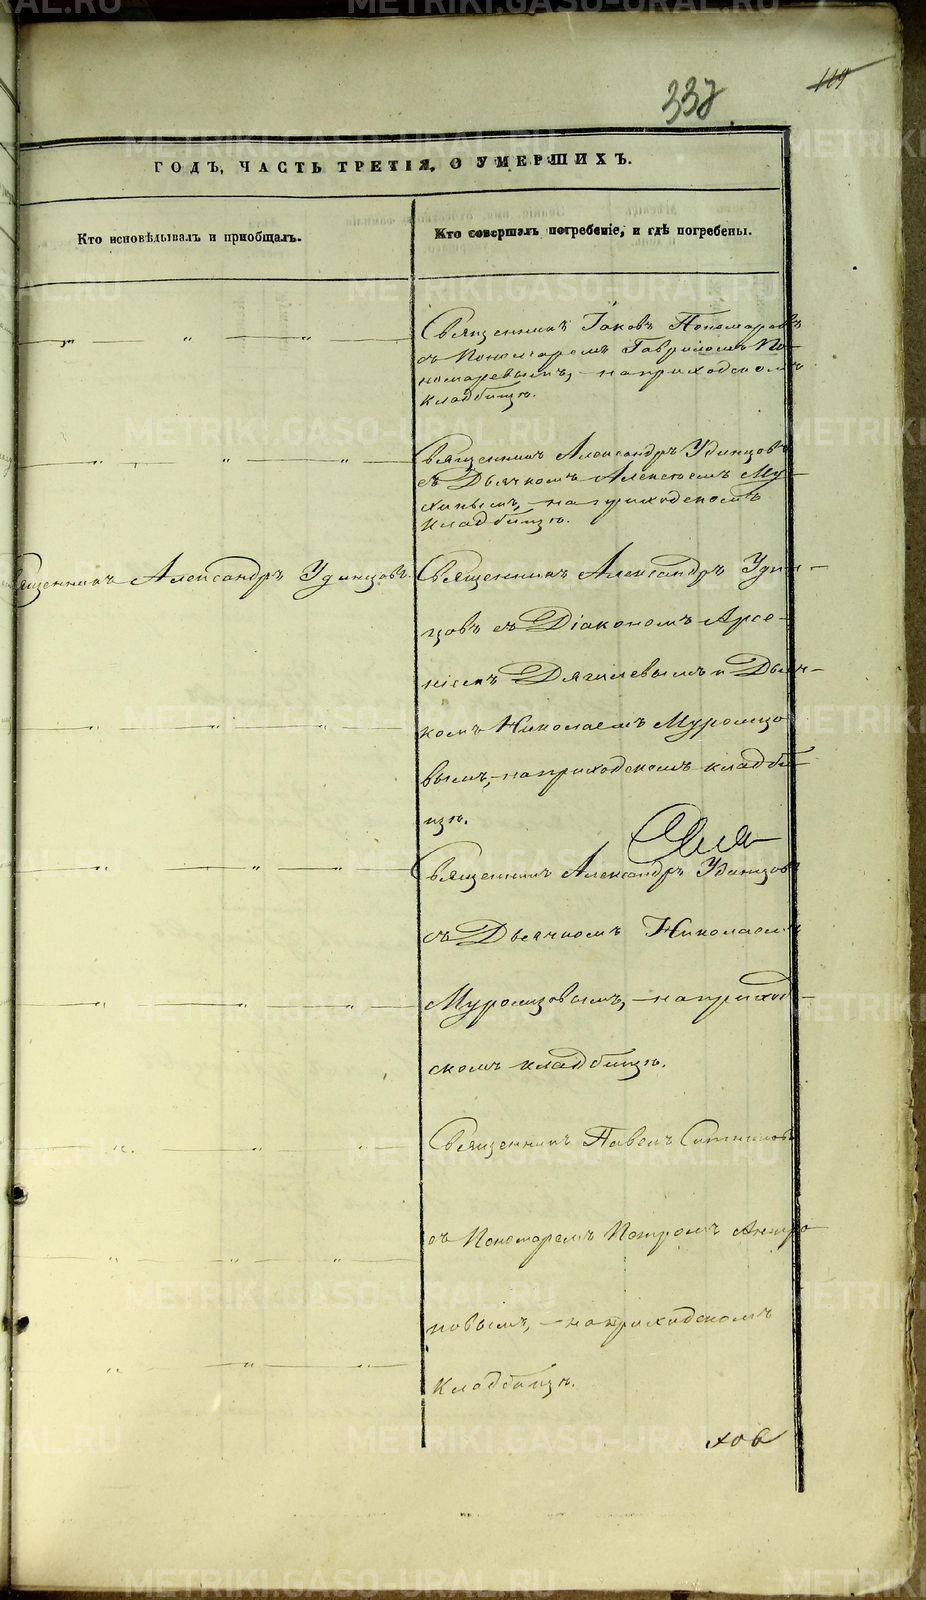 337
119
ГОДЪ, ЧАСТЬ ТРЕТІЯ, О УМЕРШИХЪ.
Кто исповѣдывалъ и пріобщалъ.
Кто совершалъ погребеніе, и гдѣ погребены.
Священникъ Іаковъ Пономаревъ
съ Пономаремъ Гавріиломъ По-
номаревымъ, на приходскомъ
кладбищѣ.
Священникъ Александръ Удинцовъ
съ Дьячкомъ Алексѣемъ Му-
хинымъ, на приходскомъ
кладбищѣ.
Священникъ Александръ Удинцовъ.
Священникъ Александръ Удин-
цовъ съ Діакономъ Арсе-
ніемъ Дягилевымъ и Дьяч-
комъ Николаемъ Муромцо
вымъ, на приходскомъ кладби
щѣ.
Священникъ Александръ Удинцовъ
съ Дьячкомъ Николаемъ
Муромцовымъ, на приход-
скомъ кладбищѣ.
Священникъ Павелъ Ситниковъ
съ Пономаремъ Петромъ Антро
повымъ, на приходскомъ
кладбищѣ.
METRIKI.GASO-URAL.RU